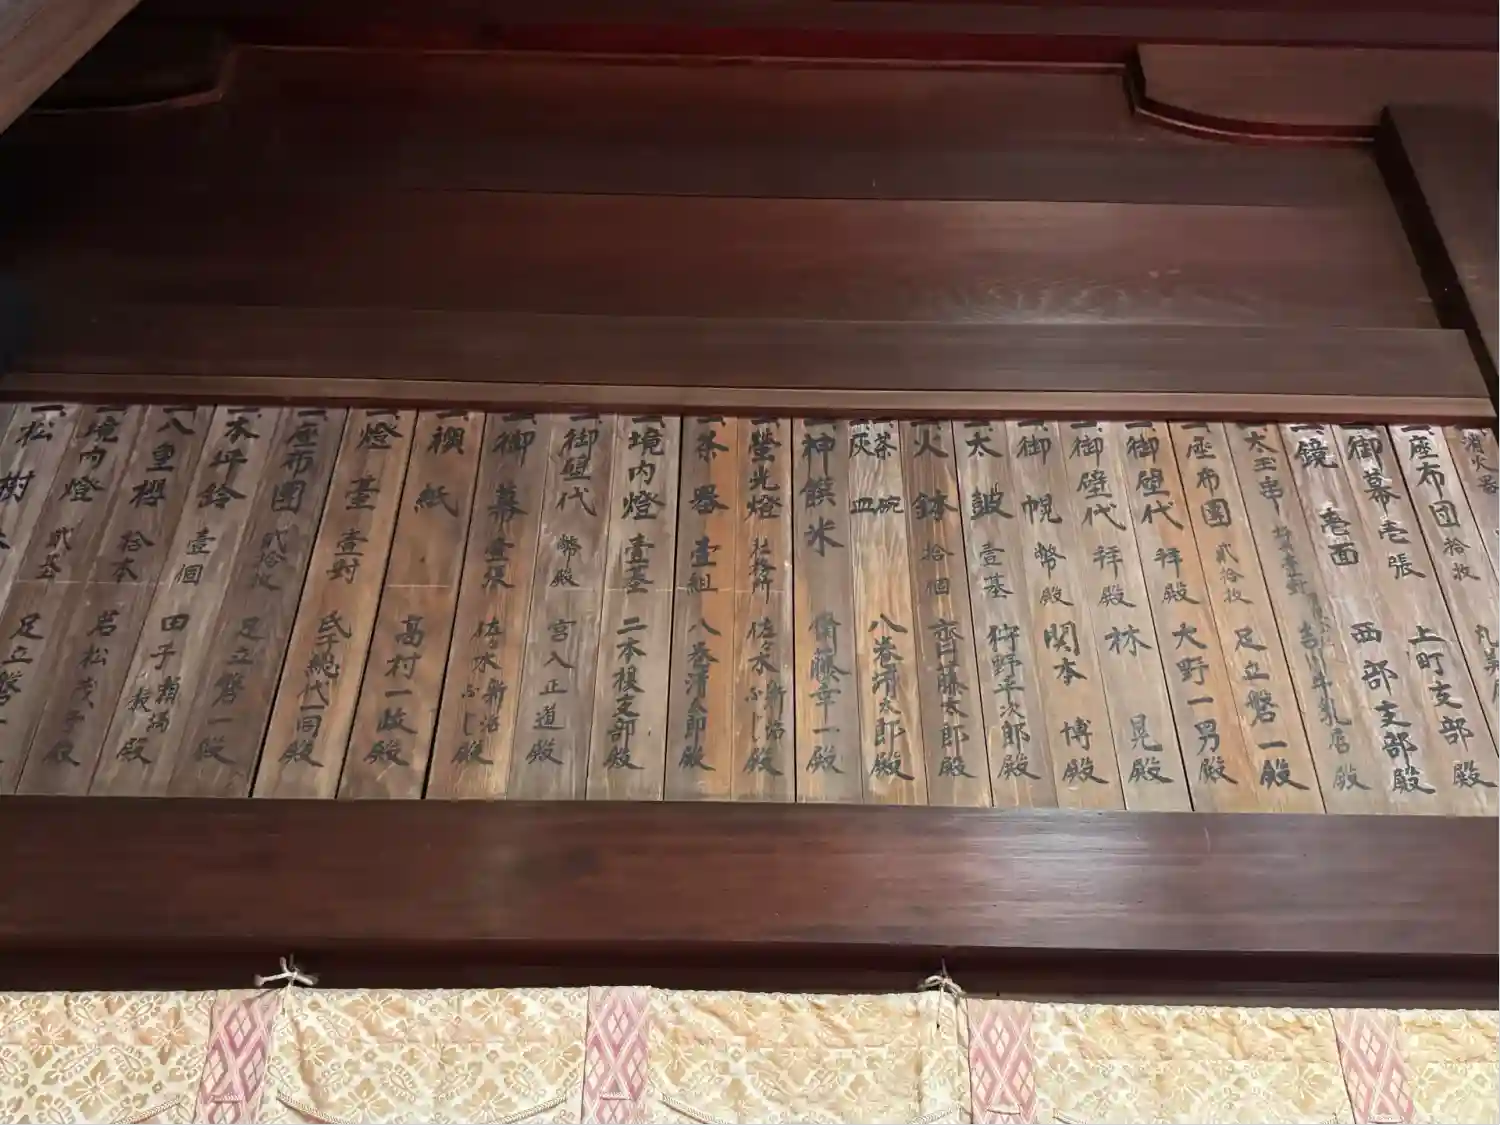 消火器
一、座布団 拾枚 丸
一、座布団 上町支部殿
一、御幕 壱張 西部支部殿
一、鏡 壱面 吉川牛乳店殿
一、太玉串 足立磐一殿
一、座布團 貳拾枚 大野一男殿
一、御壁代 拝殿 林 晃殿
一、御壁代 拝殿 関本 博殿
一、御幌 幣殿 狩野平次郎殿
一、太鼓 壹基 齊藤太郎殿
一、火鉢 拾個 八巻清太郎殿
一、茶碗 灰皿
一、神饌米 齋藤幸一殿
一、螢光燈 社務所 佐々木新治 ふじ殿
一、茶器 壹組 八巻清太郎殿
一、境内燈 壹基 二本榎支部殿
一、御壁代 幣殿 宮入正道殿
一、御幕 壹張 佐々木新治 ふじ殿
一、襖紙 高村一政殿
一、燈臺 壹對 氏子総代一同殿
一、座布團 貳拾枚 足立磐一殿
一、本坪鈴 壹個 田子殿
一、八重櫻 拾本 若松茂予殿
一、境内燈 貳基 足立磐一
一、松樹